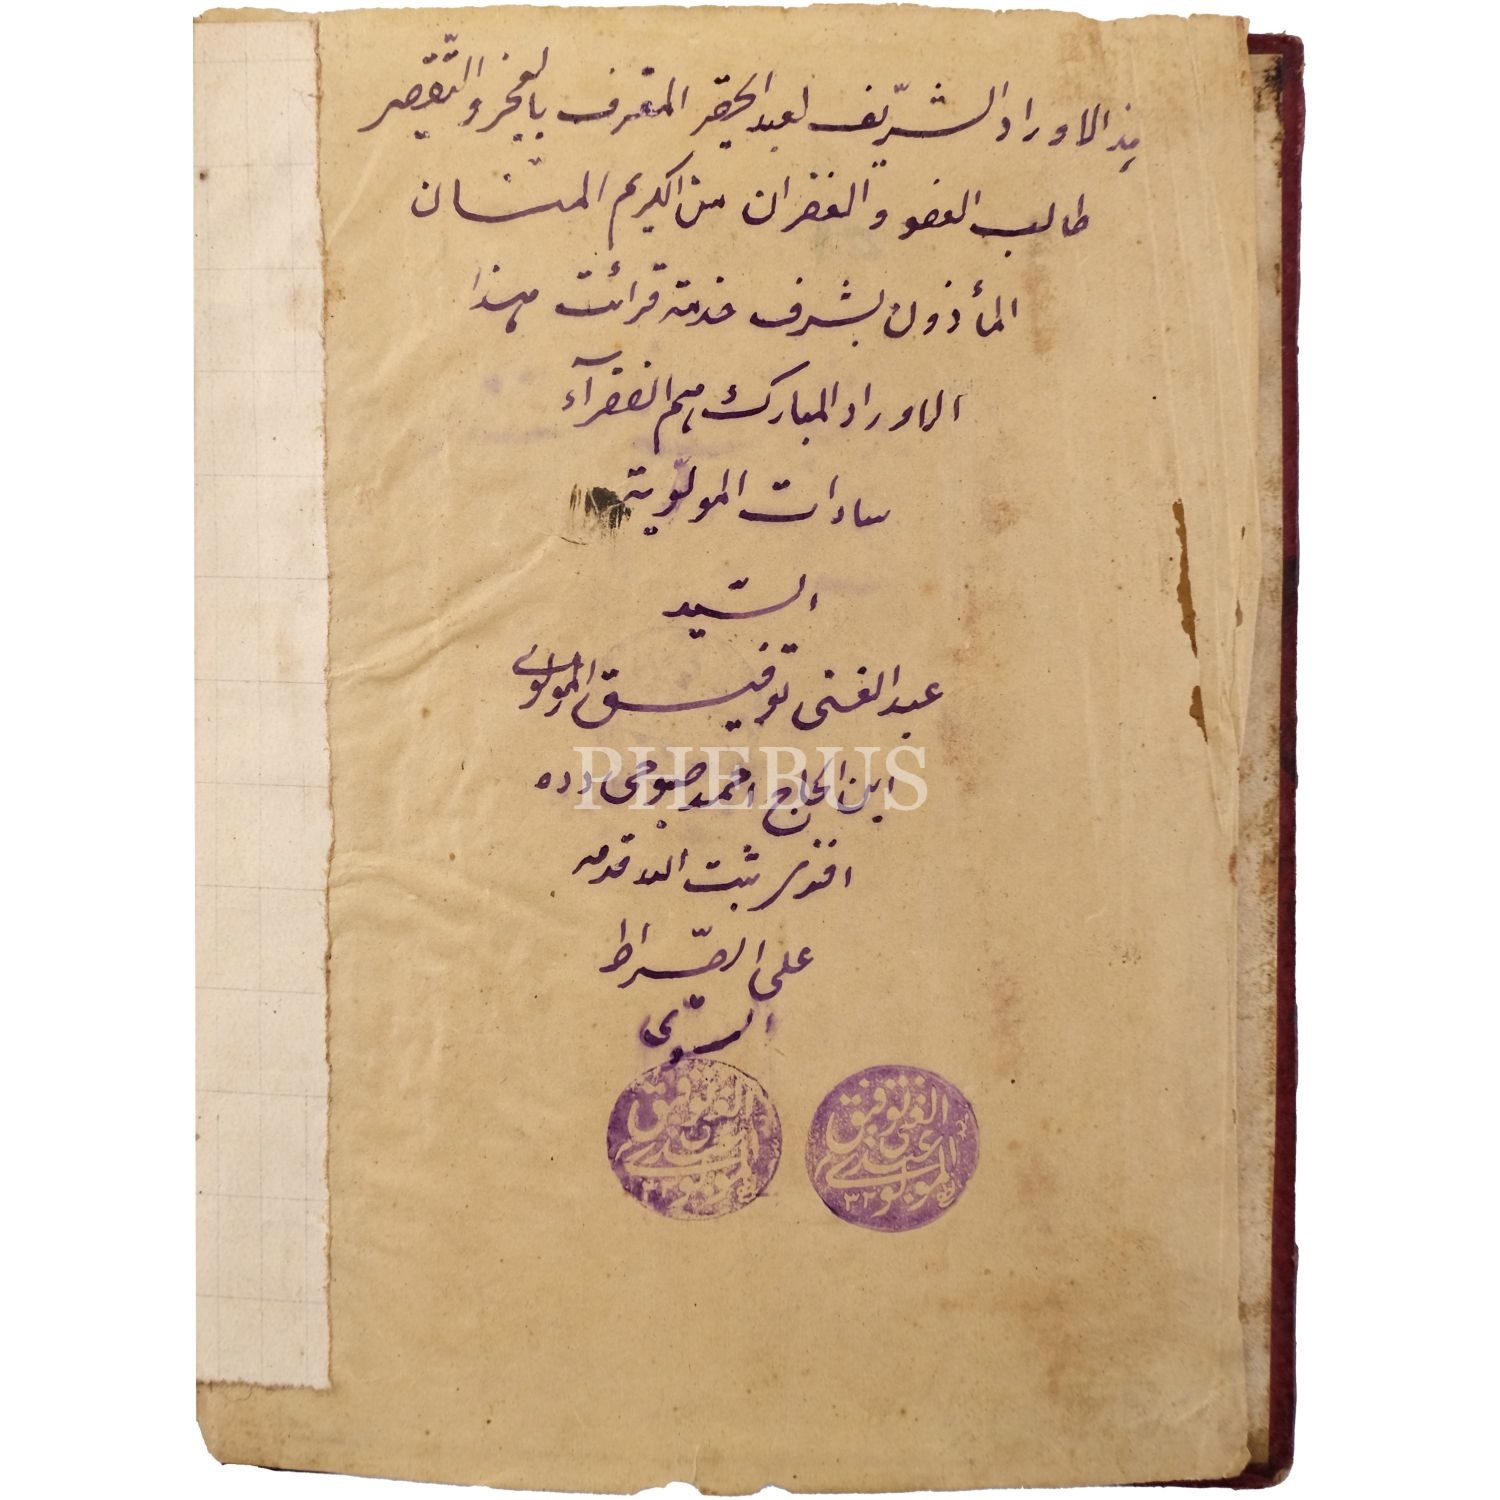 هذا الاوراد الشّريف لعبد الحقير المعترف بالعجز والتّقصير
طالب العفو والغفران من الكريم المنّان
المأذون بشرف خدمة قرائت هذا
الاوراد المبارك هم الفقرآء
سادات المولّوية
السّيد
عبد الغنى توفيق المولوى
PHEBUS
ابن الحاج احمد صبوحى دده
افندى ثبت الله قدمه
على الصّراط
السّوى
الفقير توفيق
عبد الغنى
المولوى
٣٢